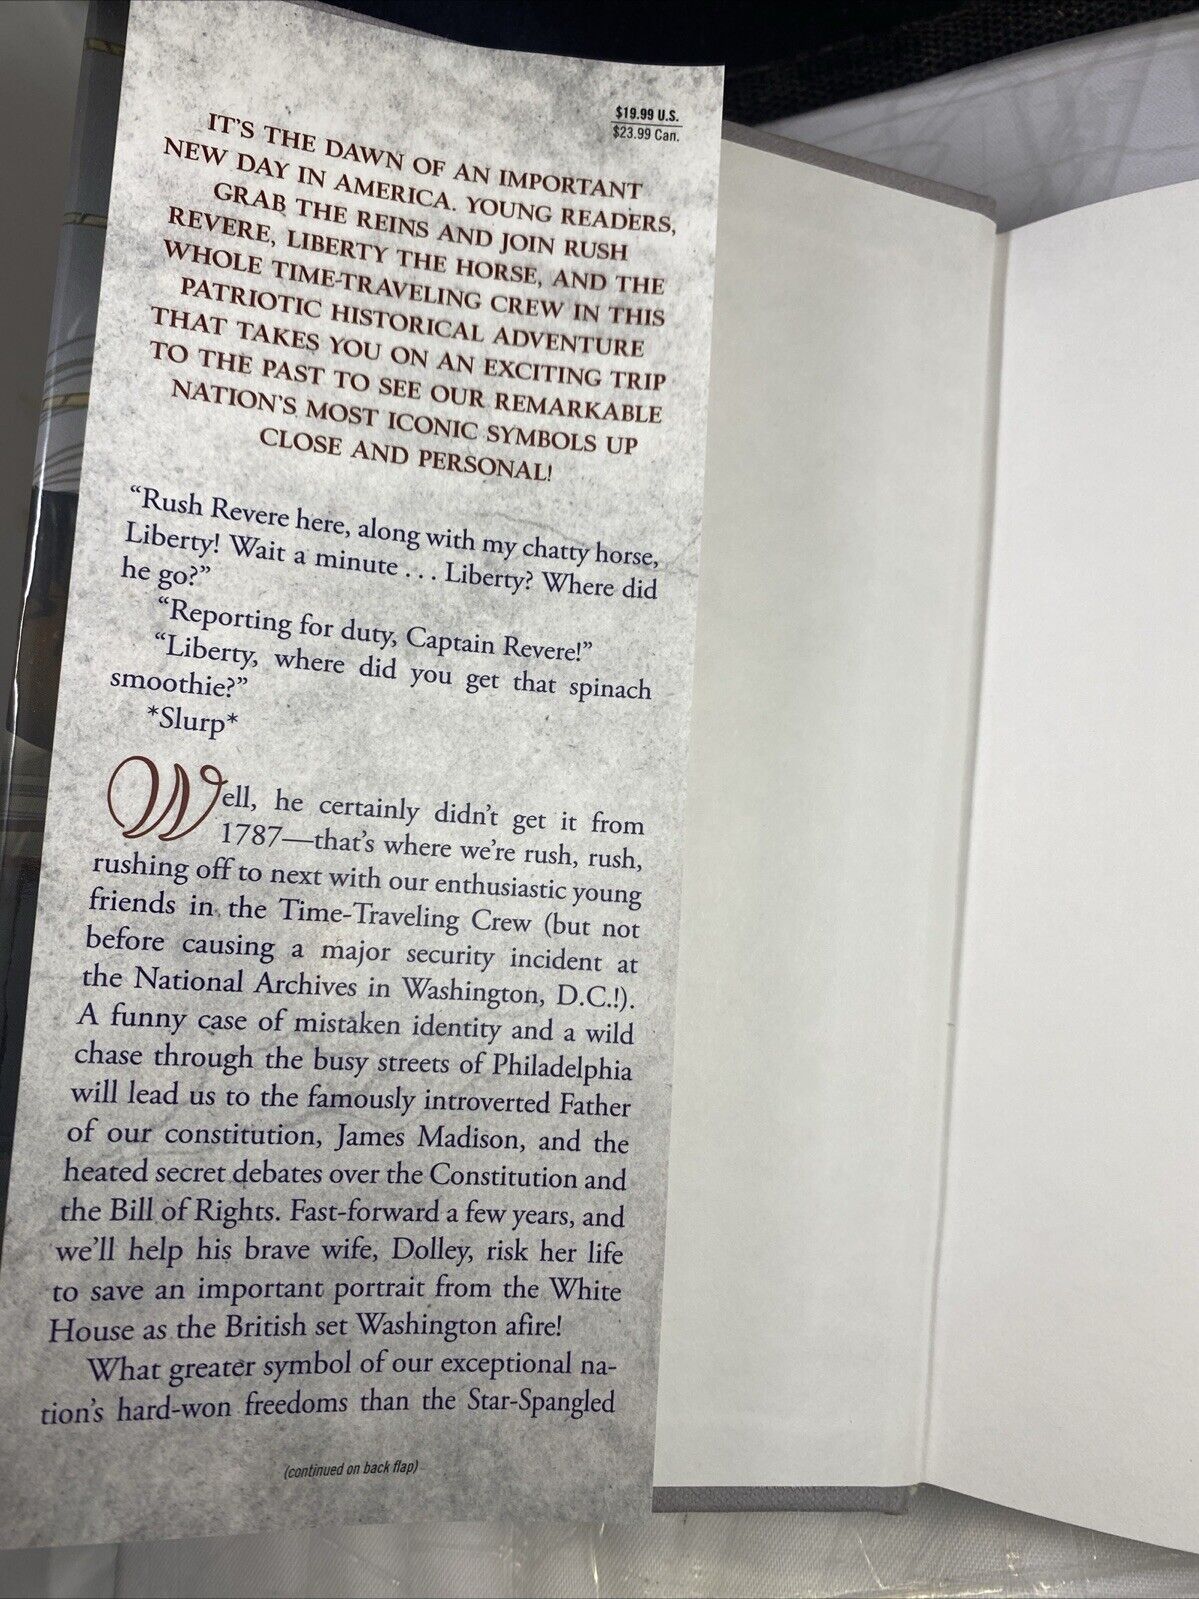 $19.99 U.S.
$23.99 Can.
IT'S THE DAWN OF AN IMPORTANT
NEW DAY IN AMERICA. YOUNG READERS,
GRAB THE REINS AND JOIN RUSH
REVERE, LIBERTY THE HORSE, AND THE
WHOLE TIME-TRAVELING CREW IN THIS
PATRIOTIC HISTORICAL ADVENTURE
THAT TAKES YOU ON AN EXCITING TRIP
TO THE PAST TO SEE OUR REMARKABLE
NATION'S MOST ICONIC SYMBOLS UP
CLOSE AND PERSONAL!
“Rush Revere here, along with my chatty horse,
Liberty! Wait a minute . . . Liberty? Where did
he go?”
“Reporting for duty, Captain Revere!”
“Liberty, where did you get that spinach
smoothie?”
*Slurp*
Well, he certainly didn't get it from
1787—that's where we're rush, rush,
rushing off to next with our enthusiastic young
friends in the Time-Traveling Crew (but not
before causing a major security incident at
the National Archives in Washington, D.C.!).
A funny case of mistaken identity and a wild
chase through the busy streets of Philadelphia
will lead us to the famously introverted Father
of our constitution, James Madison, and the
heated secret debates over the Constitution and
the Bill of Rights. Fast-forward a few years, and
we'll help his brave wife, Dolley, risk her life
to save an important portrait from the White
House as the British set Washington afire!
What greater symbol of our exceptional na-
tion's hard-won freedoms than the Star-Spangled
(continued on back flap)